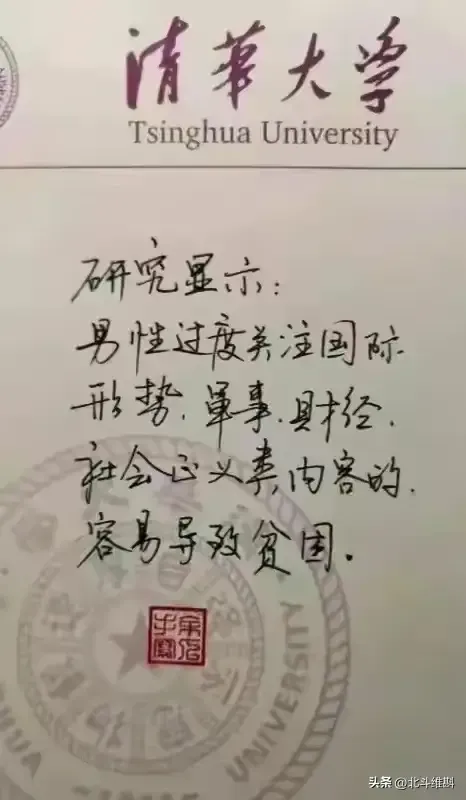 清華大学
Tsinghua University
研究显示：
男性过度关注国际
形势、軍事、财经、
社会正义类内容的、
容易导致贫困。
UNIVERSITY
头条 @北斗维斟